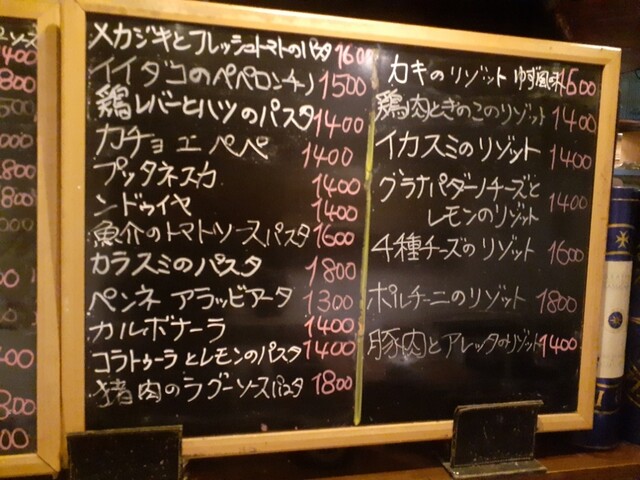 メカジキとフレッシュトマトのパスタ 1600
イイダコのペペロンチーノ 1500
鶏レバーとハツのパスタ 1400
カチョ エ ペペ 1400
プッタネスカ 1400
ンドゥイヤ 1400
魚介のトマトソースパスタ 1600
カラスミのパスタ 1800
ペンネ アラッビアータ 1300
カルボナーラ 1400
コラトゥーラとレモンのパスタ 1400
猪肉のラグーソースパスタ 1800
カキのリゾット ゆず風味 1600
鶏肉ときのこのリゾット 1400
イカスミのリゾット 1400
グラナパダーノチーズと
レモンのリゾット 1400
4種チーズのリゾット 1600
ポルチーニのリゾット 1800
豚肉とアレッタのリゾット 1400